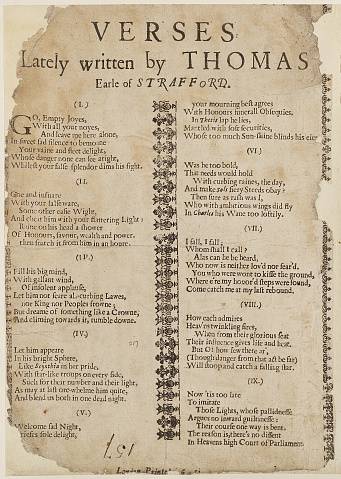 VERSES
Lately written by THOMAS
Earle of STRAFFORD.
(I.)
GO, Empty Joyes,
With all your noyes,
And leave me here alone,
In sweet sad silence to bemone
Your vaine and fleet delight,
Whose danger none can see aright,
Whilest your false splendor dims his sight.
(II.)
Goe and insnare
With your false ware,
Some other easie Wight,
And cheat him with your flattering Light;
Raine on his head a shower
Of Honours, favour, wealth and power.
then snatch it from him in an houre.
Fill his big mind,
With gallant wind,
Of insolent applause,
Let him not feare all-curbing Lawes,
nor King nor Peoples frowne;
But dreame of something like a Crowne,
And climing towards it, tumble downe.
(IV.)
Let him appeare
In his bright Sphere,
Like Scynthia in her pride,
With star-like troups on every side,
Such for their number and their light,
As may at last ore-whelme him quite,
And blend us both in one dead night.
(V.)
Welcome sad Night,
Griefes sole delight,
your mourning best agrees
With Honours funerall Obsequies.
In Thetis lap he lies,
Mantled with soft securities,
Whose too much Sun-shine blinds his eies
(VI.)
Was he too bold,
That needs would hold
With curbing raines, the day,
And make sols fiery Steeds obay?
Then sure as rash was I,
Who with ambitious wings did fly
In Charles his Wane too loftily.
(VII.)
I fall, I fall;
Whom shall I call?
Alas can he be heard,
Who now is neither lov'd nor fear'd.
You who were wont to kisse the ground,
Where e're my honor'd steps were found,
Come catch me at my last rebound.
(VIII.)
How each admires
Heav'ns twinkling fires,
When from their glorious seat
Their influence gives life and heat.
But O! how few there are,
(Though danger from that act be far)
Will stoop and catch a falling star.
(IX.)
Now 'tis too late
To imitate
Those Lights, whose pallidnesse
Argues no inward guiltinesse:
Their course one way is bent.
The reason is, there's no dissent
In Heavens high Court of Parliament.
London Printe